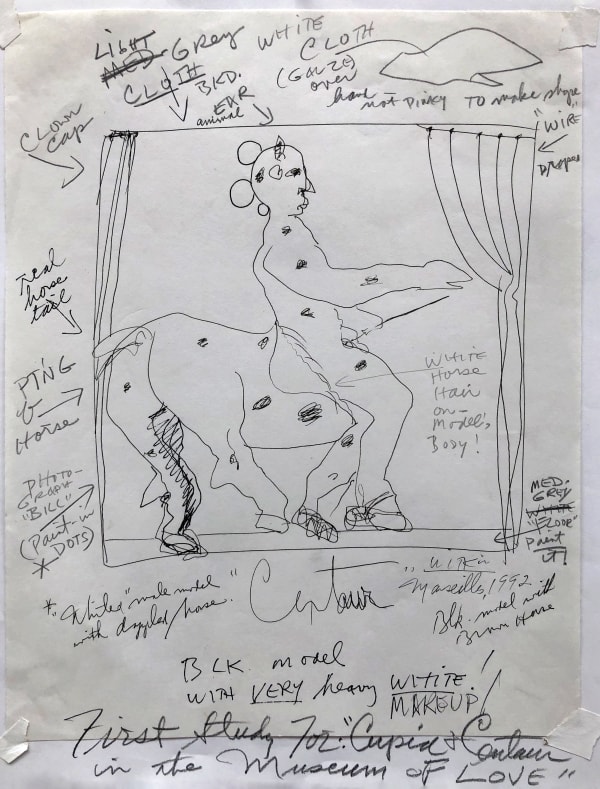 LIGHT
MED. GREY
CLOTH
BKD.
WHITE
CLOTH
(GAUZE)
over
hand
not pinky to make shape
CLOWN
CAP
EXR
animal
"WIRE"
Drapes
real
horse
tail
PT'NG
of
Horse
WHITE
Horse
Hair
on
Model's
Body!
PHOTO-
GRAPH
"BILL"
(Paint-in
DOTS)
*
MED.
GREY
WHITE
"FLOOR"
Paint
it!
* "White" male model"
with dappled horse.
Centaur
WITKIN
Marseilles, 1992
Blk. model with
Brown Horse
BLK. model
WITH VERY heavy WHITE
MAKEUP!
First Study For: "Cupid & Centaur
in the Museum of LOVE"